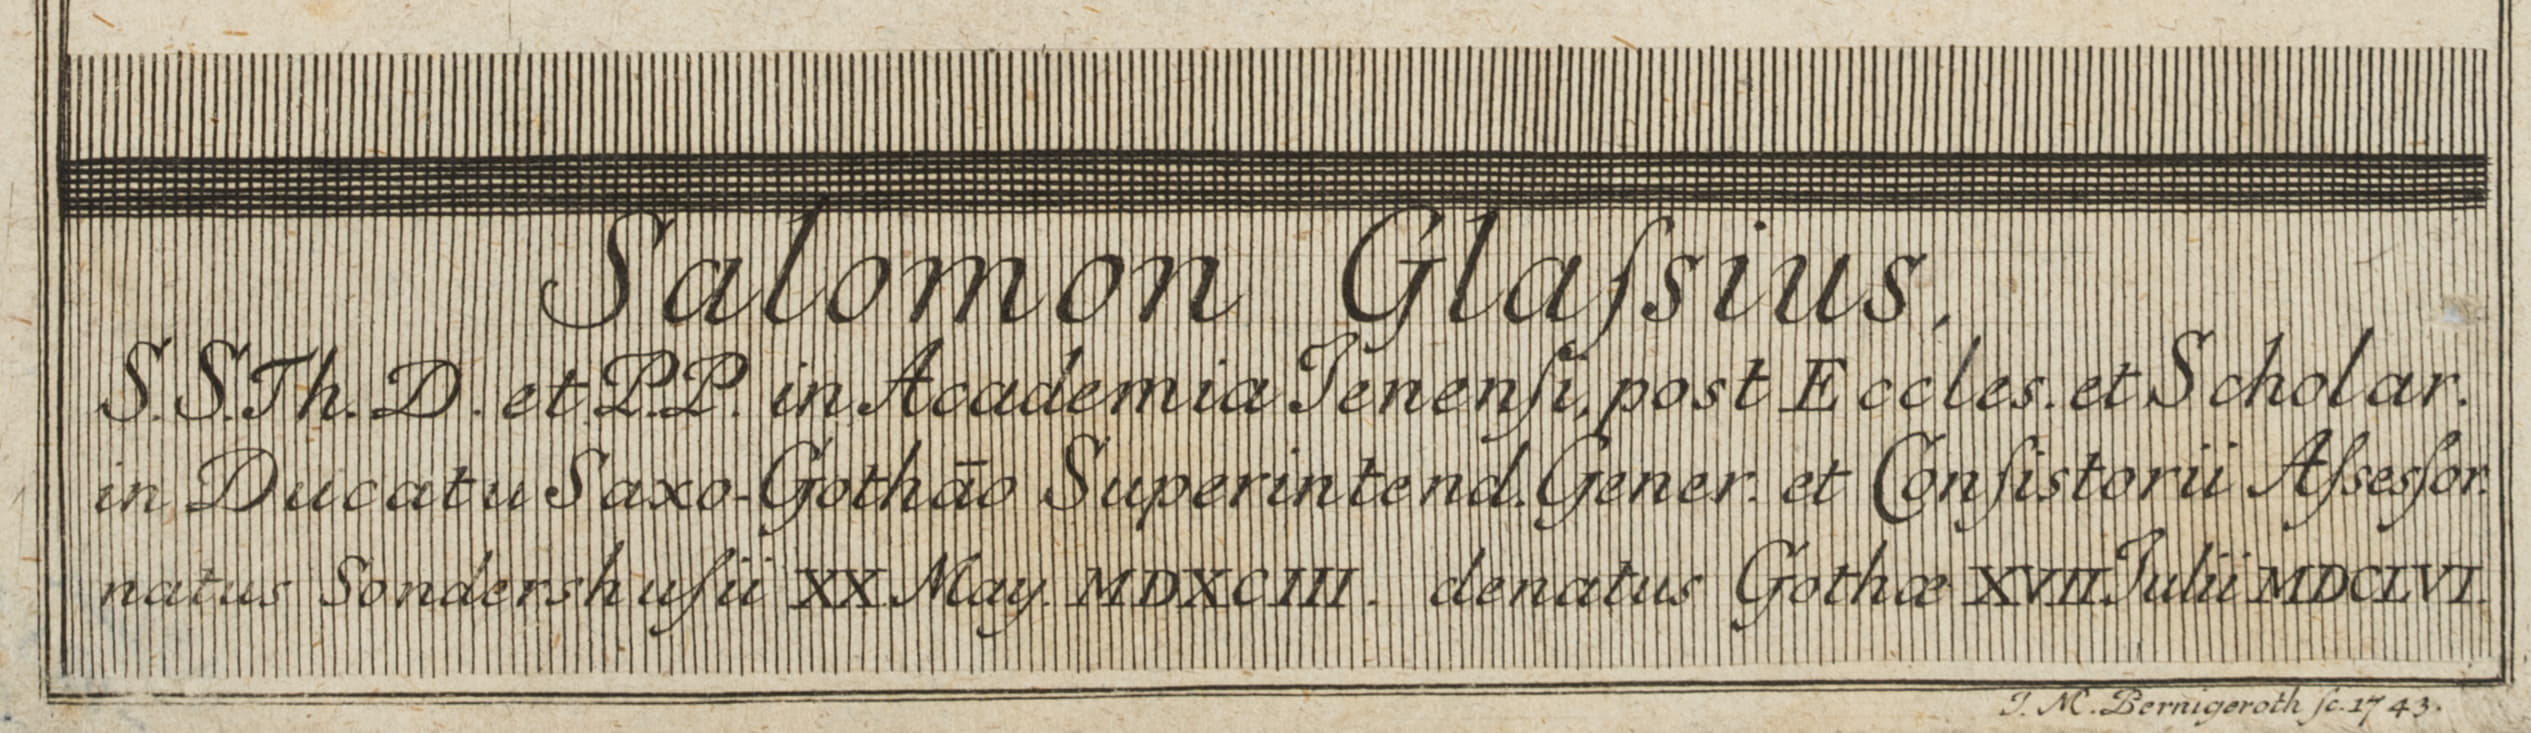 Salomon Glaſsius,
S. S. Th. D. et P.P. in Academia Jenenſi, post Eccles. et Scholar.
in Ducatu Saxo-Gothāo Superintend. Gener. et Conſistorii Aſsesſor.
natus Sondershuſii XX. May. MDXCIII. denatus Gothæ XVII. Julii MDCLVI.
J. M. Bernigeroth ſc. 1743.